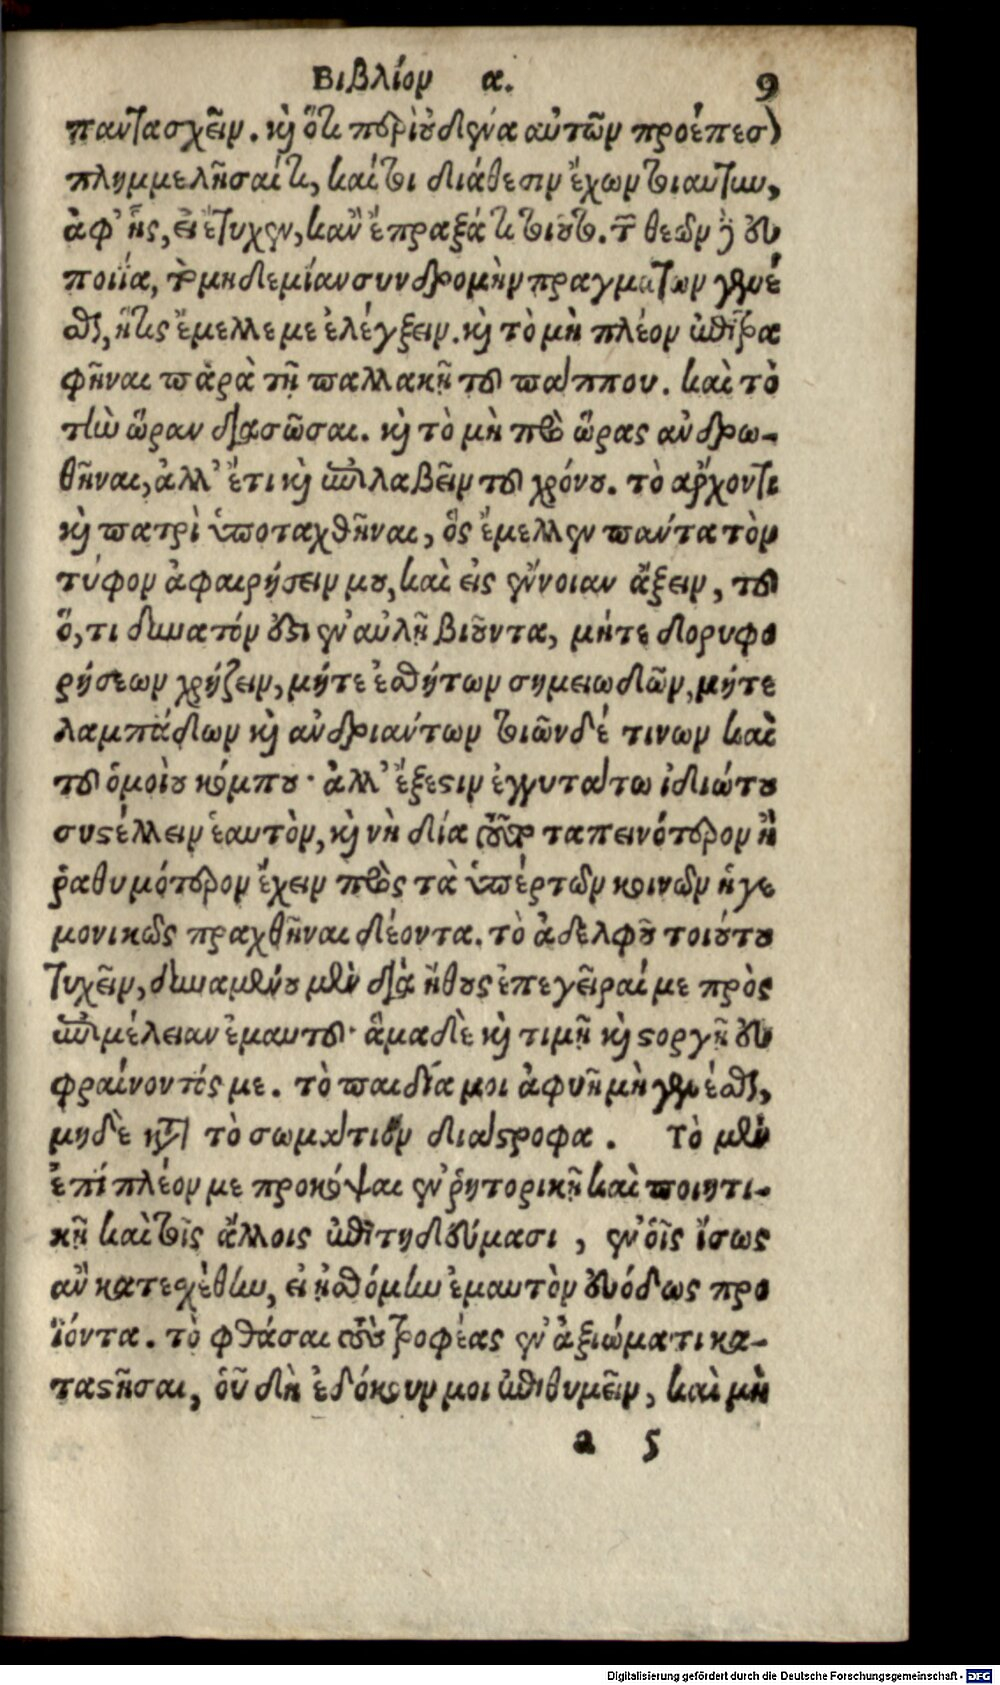 Βιβλίον α. 9
παντα σχεῖν. καὶ ὅτι περὶ οὐδένα αὐτῶν προέπεσον
πλημμελῆσαί τι, καίτοι διάθεσιν ἔχων τοιαύτην,
ἀφ' ἧς, εἰ ἔτυχεν, κἂν ἔπραξά τι τοιοῦτο. τῶν θεῶν δὲ εὐ
ποιία, τὸ μηδεμίαν συνδρομὴν πραγμάτων γενέ
σθαι, ἥτις ἔμελλε με ἐλέγξειν. καὶ τὸ μὴ πλέον ἐπιτρα
φῆναι παρὰ τῇ παλλακῇ τοῦ πάππου. καὶ τὸ
τὴν ὥραν διασῶσαι. καὶ τὸ μὴ πρὸ ὥρας ἀνδρω-
θῆναι, ἀλλ' ἔτι καὶ ἐπιλαβεῖν τοῦ χρόνου. τὸ ἄρχοντι
καὶ πατρὶ ὑποταχθῆναι, ὃς ἔμελλεν πάντα τὸν
τύφον ἀφαιρήσειν μου, καὶ εἰς ἔννοιαν ἄξειν, τοῦ
ὅ, τι δυνατόν ἐστι ἐν αὐλῇ βιοῦντα, μήτε δορυφο
ρήσεων χρῄζειν, μήτε ἐσθήτων σημειωδῶν, μήτε
λαμπάδων καὶ ἀνδριάντων τοιῶνδέ τινων καὶ
τοῦ ὁμοίου κόμπου· ἀλλ' ἔξεστιν ἐγγυτάτω ἰδιώτου
συστέλλειν ἑαυτὸν, καὶ μὴ διὰ τοῦτο ταπεινότερον ἢ
ῥαθυμότερον ἔχειν πρὸς τὰ ὑπὲρ τῶν κοινῶν ἡγε
μονικῶς πραχθῆναι δέοντα. τὸ ἀδελφοῦ τοιούτου
τυχεῖν, δυναμένου μὲν διὰ ἤθους ἐπεγεῖραί με πρὸς
ἐπιμέλειαν ἐμαυτοῦ· ἅμα δὲ καὶ τιμῇ καὶ στοργῇ εὐ
φραίνοντός με. τὸ παιδία μοι ἀφυῆ μὴ γενέσθαι,
μηδὲ κατὰ τὸ σωμάτιον διάστροφα. τὸ μὴ
ἐπίπλέον με προκόψαι ἐν ῥητορικῇ καὶ ποιητι-
κῇ καὶ τοῖς ἄλλοις ἐπιτηδεύμασι, ἐν οἷς ἴσως
ἂν κατεσχέθην, εἰ ᾐσθόμην ἐμαυτὸν εὐόδως προ
ϊόντα. τὸ φθάσαι τοὺς τροφέας ἐν ἀξιώματι κα-
ταστῆσαι, οὗ δὴ ἐδόκουν μοι ἐπιθυμεῖν, καὶ μὴ
a 5
Digitalisierung gefördert durch die Deutsche Forschungsgemeinschaft - DFG